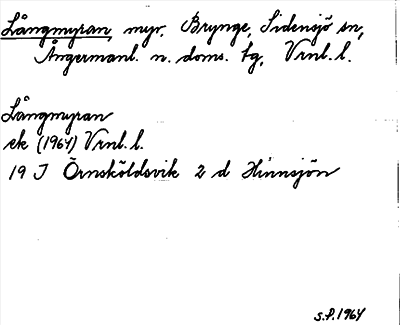 Långmyran, myr, Brynge, Sidensjö sn,
Ångermanl. n. doms. tg, Vrnl. l.
Långmyran
ek (1964) Vrnl. l.
19 J Örnsköldsvik 2 d Hinnsjön
s.f. 1964